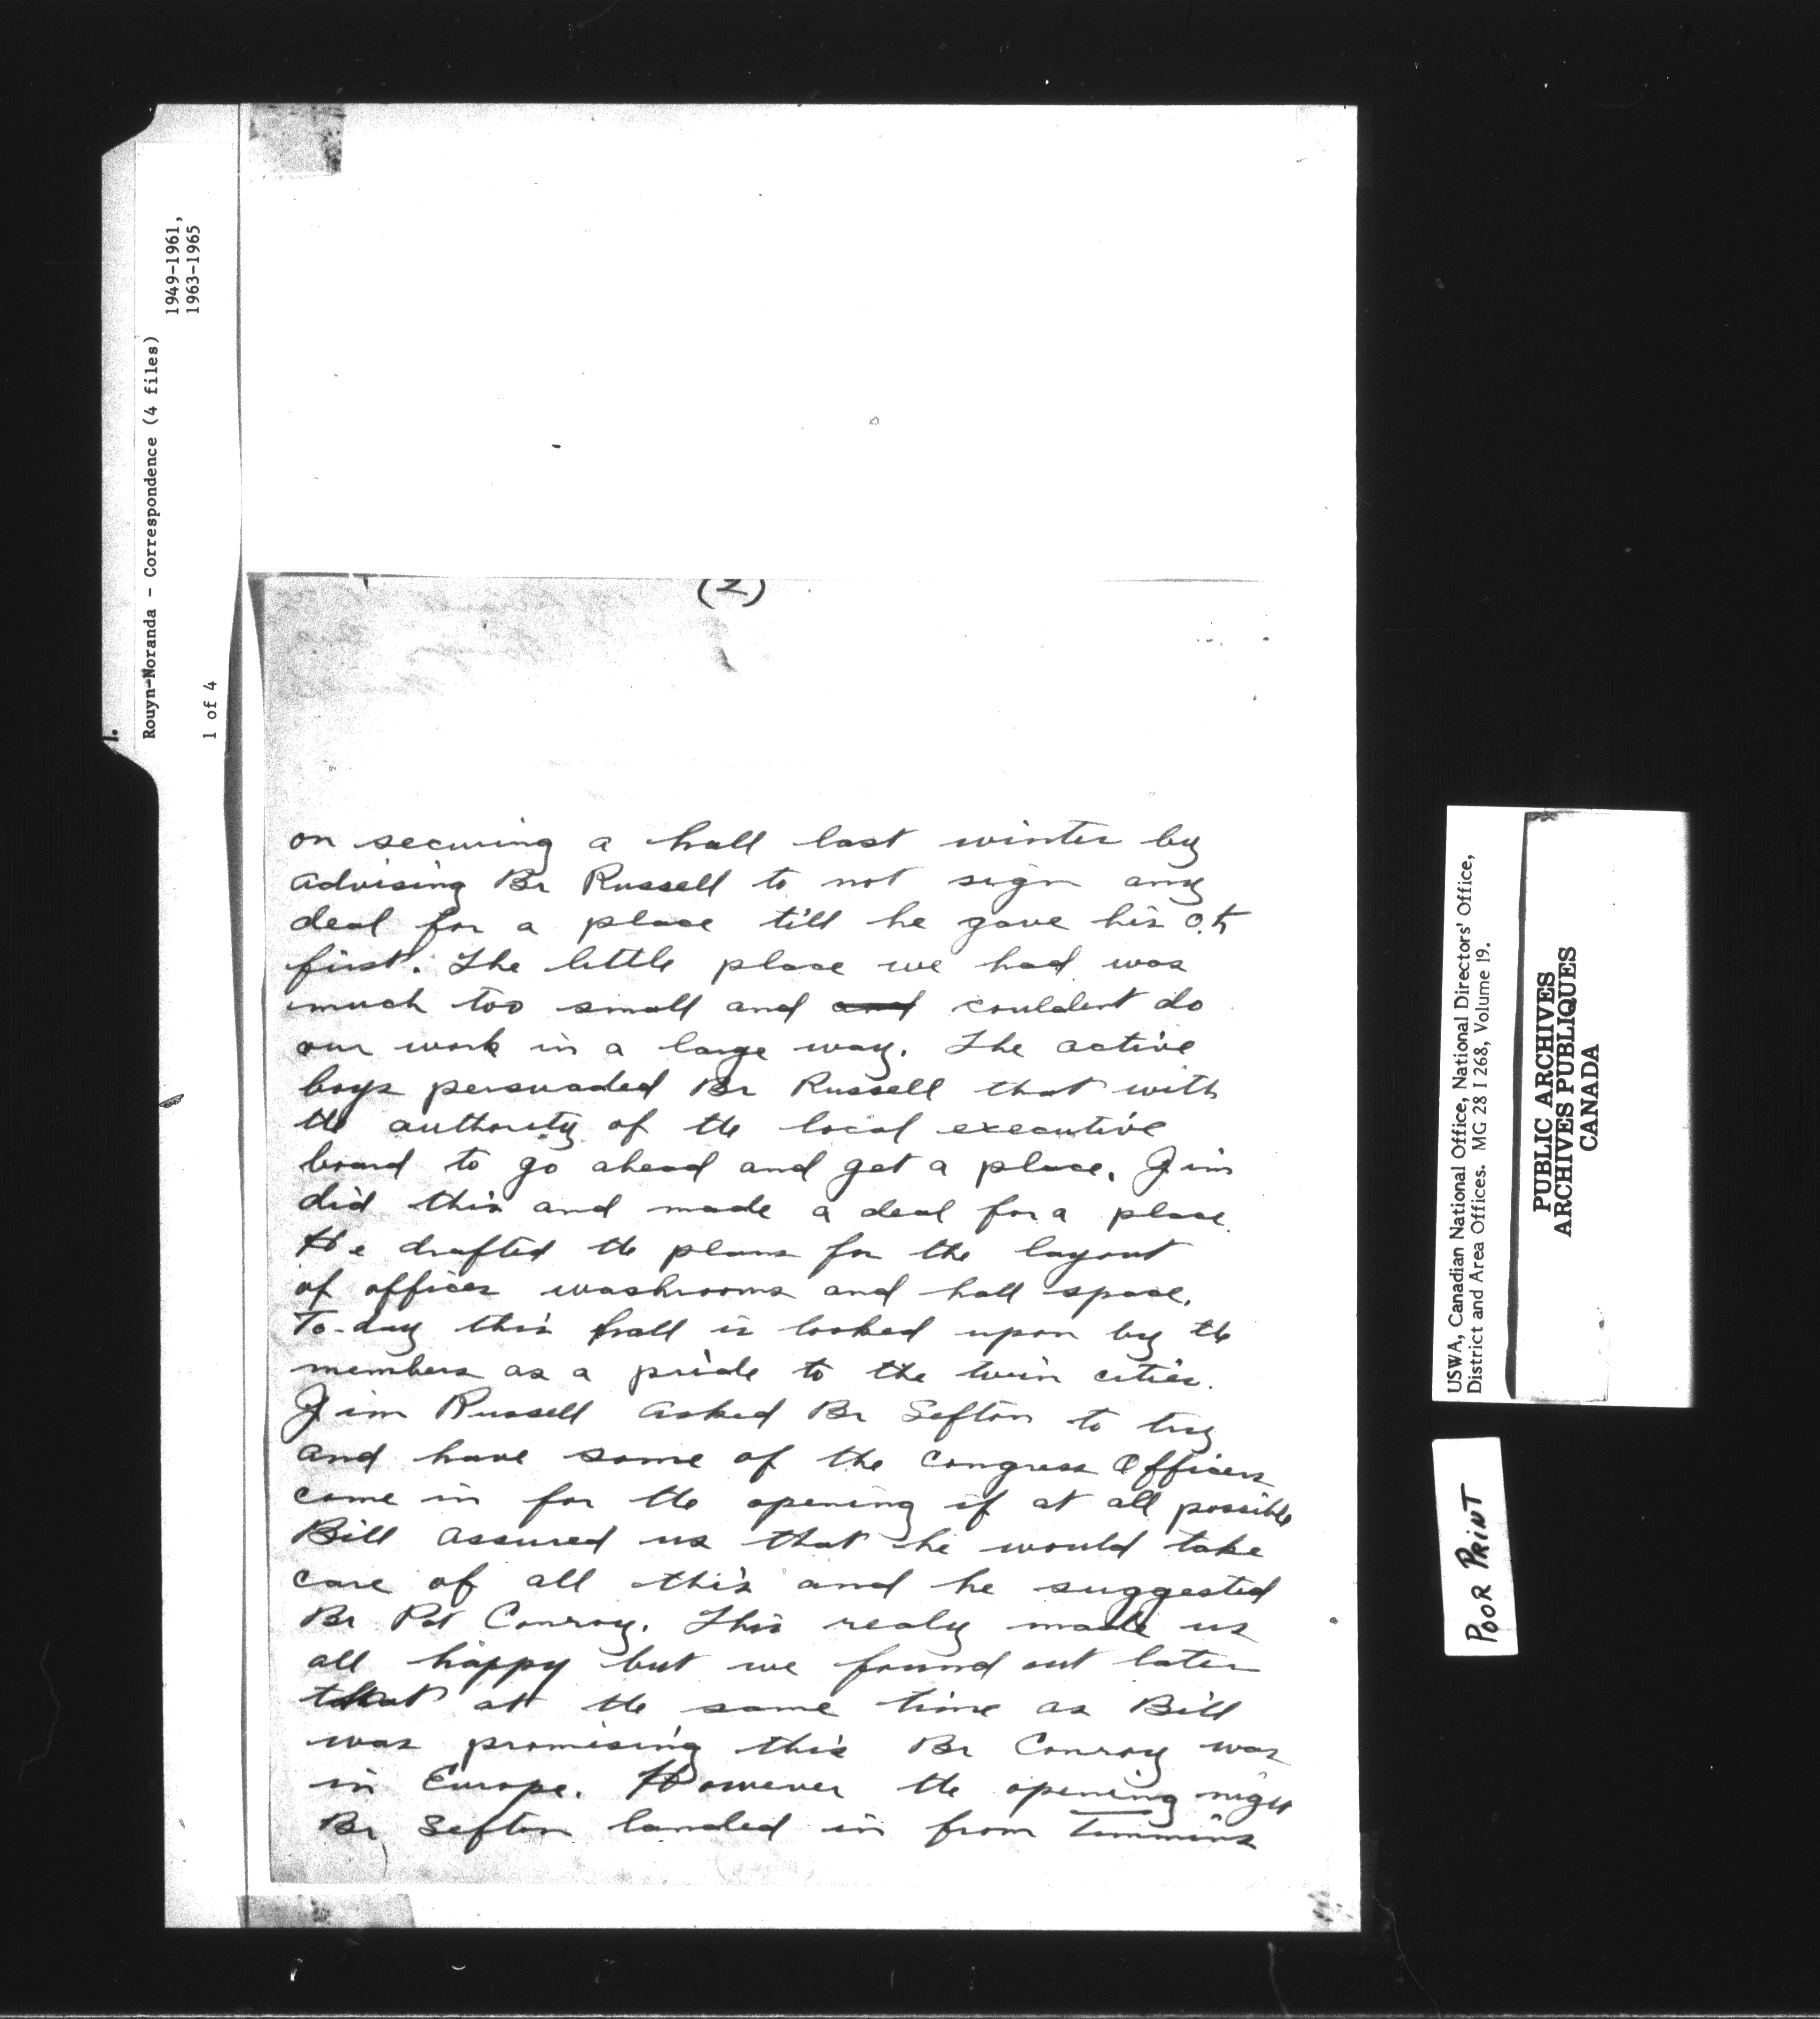 1.
Rouyn-Noranda - Correspondence (4 files)
1949-1961,
1963-1965
1 of 4
(2)
on securing a hall last winter by
advising Br Russell to not sign any
deal for a place till he gave his O.K
first. The little place we had was
much too small and and couldent do
our work in a large way. The active
boys persuaded Br Russell that with
the authority of the local executive
board to go ahead and get a place. Jim
did this and made a deal for a place.
He drafted the plans for the layout
of offices washrooms and hall space.
To-day this hall is looked upon by the
members as a pride to the twin cities.
Jim Russell asked Br Sefton to try
and have some of the Congress Officers
come in for the opening if at all possible
Bill assured us that he would take
care of all this and he suggested
Br Pat Conroy. This realy made us
all happy but we found out later
that at the same time as Bill
was promising this Br Conroy was
in Europe. However the opening night
Br Sefton landed in from Timmins
USWA, Canadian National Office, National Directors' Office,
District and Area Offices. MG 28 I 268, Volume 19.
PUBLIC ARCHIVES
ARCHIVES PUBLIQUES
CANADA
POOR PRINT